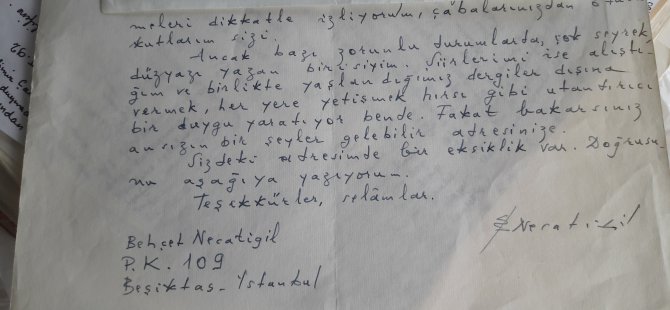 meleri dikkatle izliyorum, çabalarınızdan
kutlarım sizi.
Ancak bazı zorunlu durumlarda, çok seyrek
düzyazı yazan birisiyim. Şiirlerimi ise alıştı-
ğım ve birlikte yaşlandığımız dergiler dışına
vermek, her yere yetişmek hırsı gibi utandırıcı
bir duygu yaratıyor bende. Fakat bakarsınız
ansızın bir şeyler gelebilir adresinize.
Sizdeki adresimde bir eksiklik var. Doğrusu-
nu aşağıya yazıyorum.
Teşekkürler, selâmlar.
Behçet Necatigil
P.K. 109
Beşiktaş - İstanbul